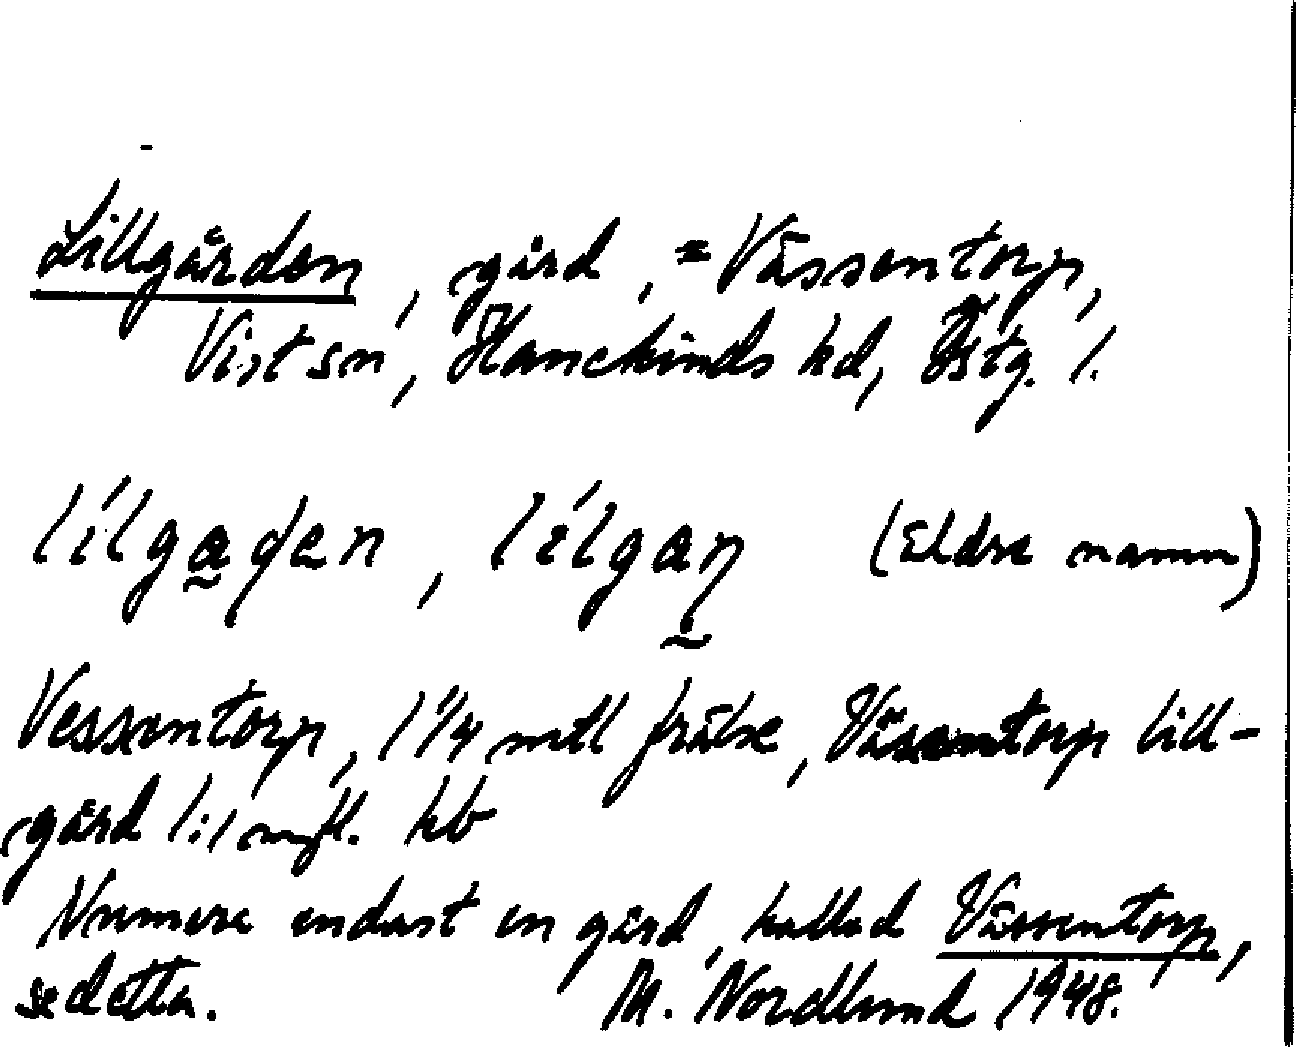 Lillgården, gård, = Vässentorp,
Vist sn, Hanekinds hd, Östg. l.
lílga̰ḍen, lílgaṇ̰ (Eldre namn)
Vessentorp, 1 1/4 mtl frälse, Väsentorp lill-
gård 1:1 m.fl. kb
Numera endast en gård, kallad Vässentorp,
se detta. M. Nordlund 1948.